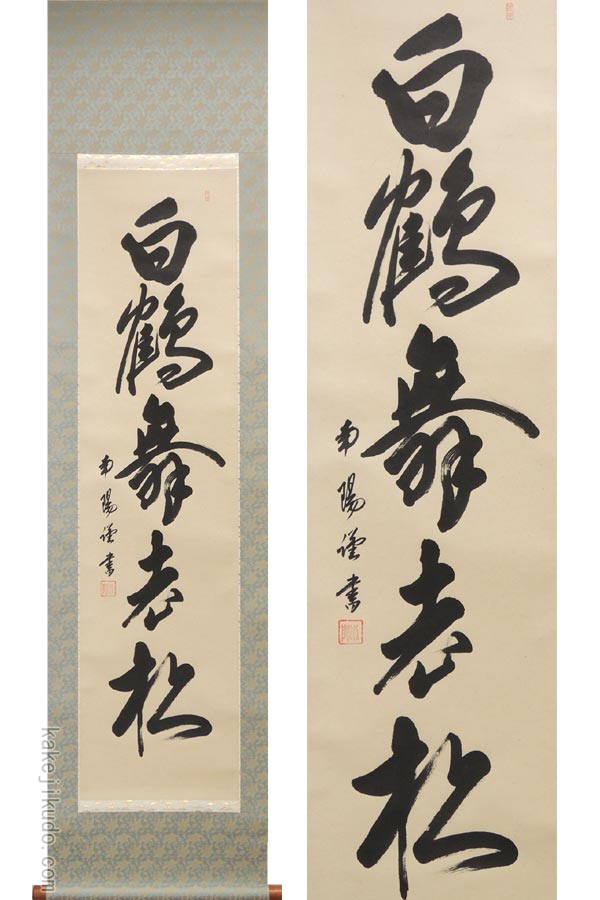 白鶴舞老松
南陽謹書
白鶴舞老松
南陽謹書
kakejikudo.com